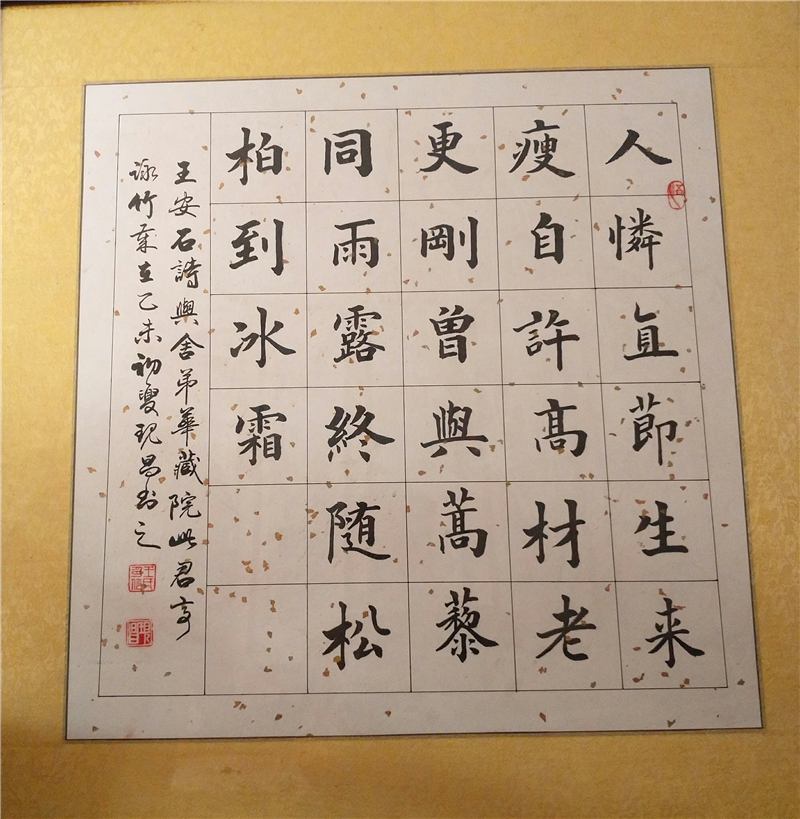 人憐直節生来
瘦自許高材老
更剛曾與蒿藜
同雨露終随松
柏到冰霜
王安石詩與舍弟華藏院此君亭
詠竹歲在乙未初夏現昌書之